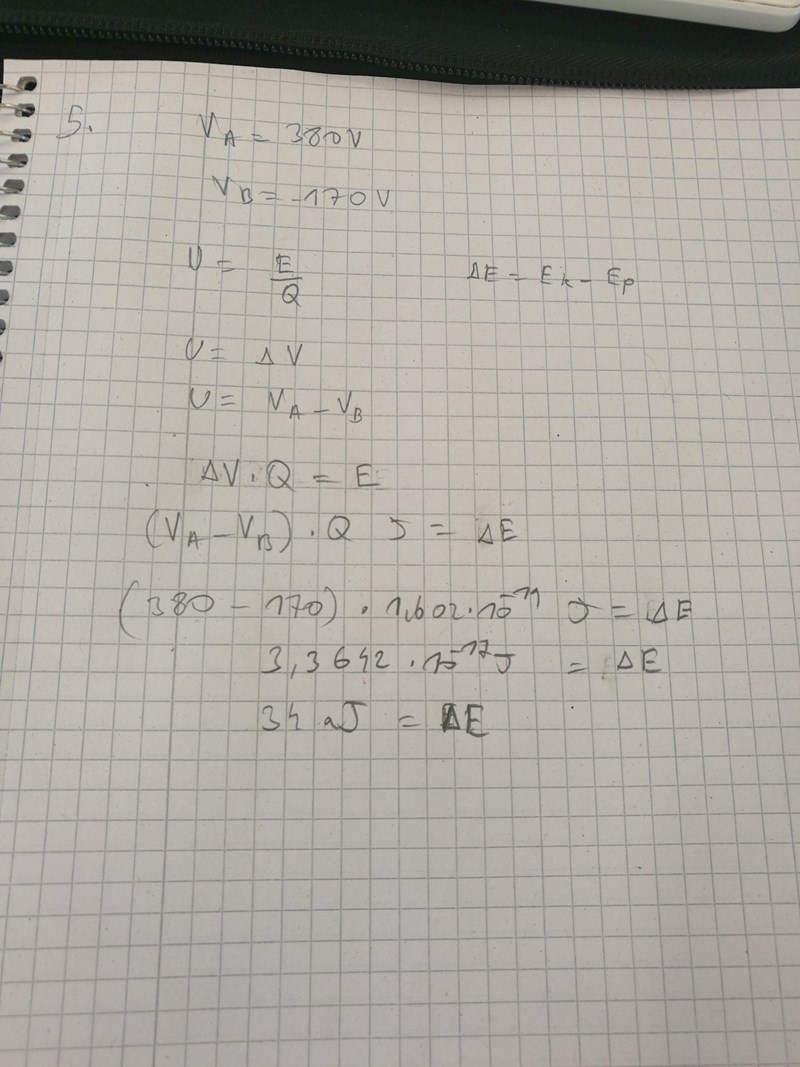 5. V_A = 380V
V_B = -170V
U = E/Q ΔE = E_k - E_p
U = ΔV
U = V_A - V_B
ΔV · Q = E
(V_A - V_B) · Q J = ΔE
(380 - 170) · 1,602 · 10^-19 J = ΔE
3,3642 · 10^-17 J = ΔE
34 aJ = ΔE